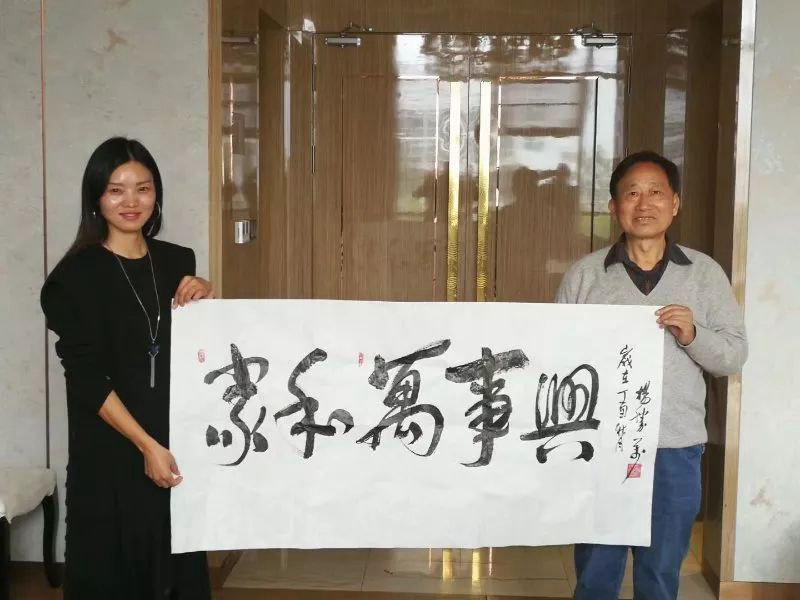 家和萬事興
歲在丁酉秋月
楊